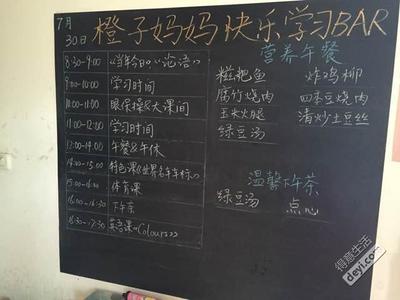 7月
30日 橙子妈妈快乐学习BAR
8:30-9:00 《当年今日》《论语》
9:00-10:00 学习时间
10:00-11:00 眼保操&大课间
11:00-12:00 学习时间
12:00-14:00 午餐&午休
14:00-15:00 特色课《世界名车车标》
15:00-16:00 体育课
16:00-16:30 下午茶
16:30-17:30 英语课《Colours》
营养午餐
糍粑鱼 炸鸡柳
腐竹烧肉 四季豆烧肉
玉米火腿 清炒土豆丝
绿豆汤
温馨下午茶
绿豆汤 点心
得意生活
deyi.com